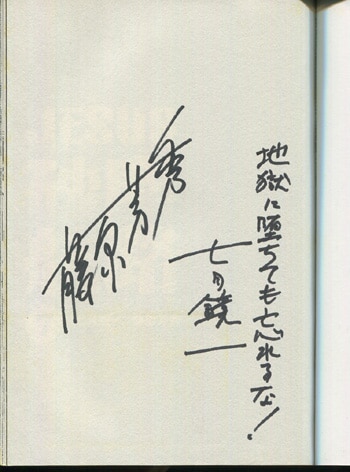 地獄に堕ちても忘れるな!
七月鏡一
藤原芳秀